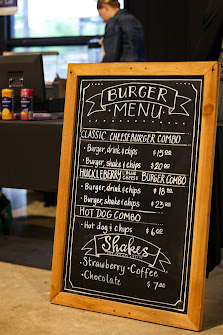 BURGER
MENU
CLASSIC CHEESEBURGER COMBO
• Burger, drink & chips $15.00
• Burger, shake & chips $20.00
HUCKLEBERRY BLUE CHEESE BURGER COMBO
• Burger, drink & chips $18.00
• Burger, shake & chips $23.00
HOT DOG COMBO
• Hot dog & chips $6.00
Shakes
• Strawberry • Coffee
• Chocolate $7.00